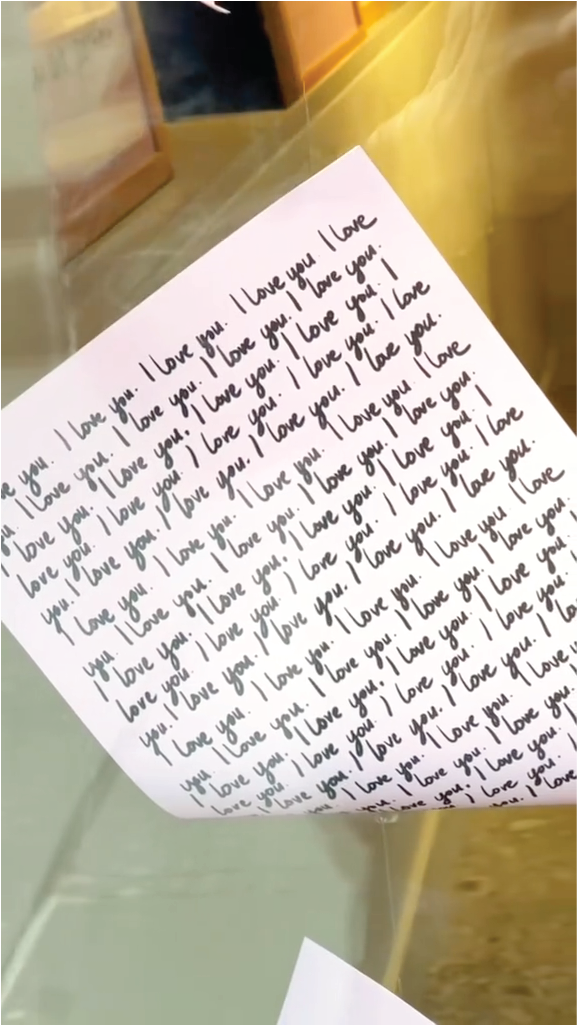 ve you. I love you. I love you. I love you. I love
u. I love you. I love you. I love you. I love you.
I love you. I love you. I love you. I love you. I
love you. I love you. I love you. I love you. I love
you. I love you. I love you. I love you. I love you.
I love you. I love you. I love you. I love you. I love
you. I love you. I love you. I love you. I love you.
I love you. I love you. I love you. I love you. I
love you. I love you. I love you. I love you. I love
you. I love you. I love you. I love you. I love you.
I love you. I love you. I love you. I love you. I love
you. I love you. I love you. I love you. I love you.
I love you. I love you. I love you. I love you.
love you. I love you. I love you. I love you. I lo
I love you. I love you. I love you. I lo
you. I love you. I love you. I love y
you. I love you. I love you.
love you. I love you. I
I love you.
you. I love